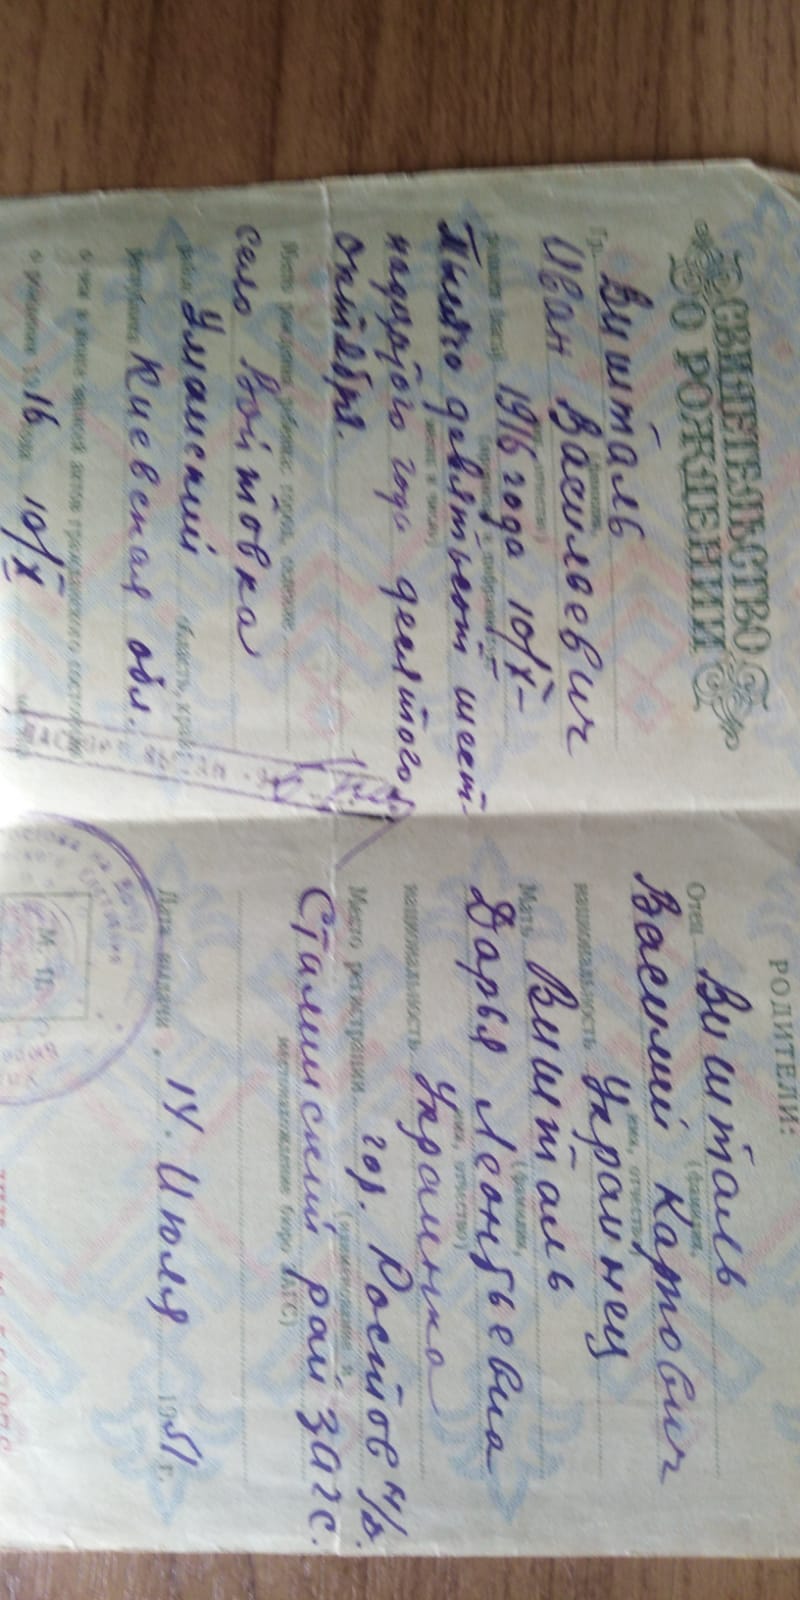 СВИДЕТЕЛЬСТВО
О РОЖДЕНИИ
Гр. Вишталь
(фамилия,
Иван Васильевич
имя, отчество)
1916 года 10/X-
Тысяча девятьсот шест-
надцатого года десятого
октября.
Место рождения ребенка: город, селение
село Войтовка
район Уманский область, край
республика Киевская обл.
о чем в книге записей актов гражданского состояния
о рождении 1916 года 10/X
РОДИТЕЛИ:
Отец Вишталь
(фамилия,
Василий Карпович
имя, отчество)
национальность Украинец
Мать Вишталь
(фамилия,
Дарья Леонтьевна
имя, отчество)
национальность Украинка
Место регистрации гор. Ростов н/Д.
(наименование и
Сталинский рай ЗАГС.
местонахождение бюро ЗАГС)
Дата выдачи 14. Июля 1951 г.
М. П.
ПАСПОРТ ВЫДАН